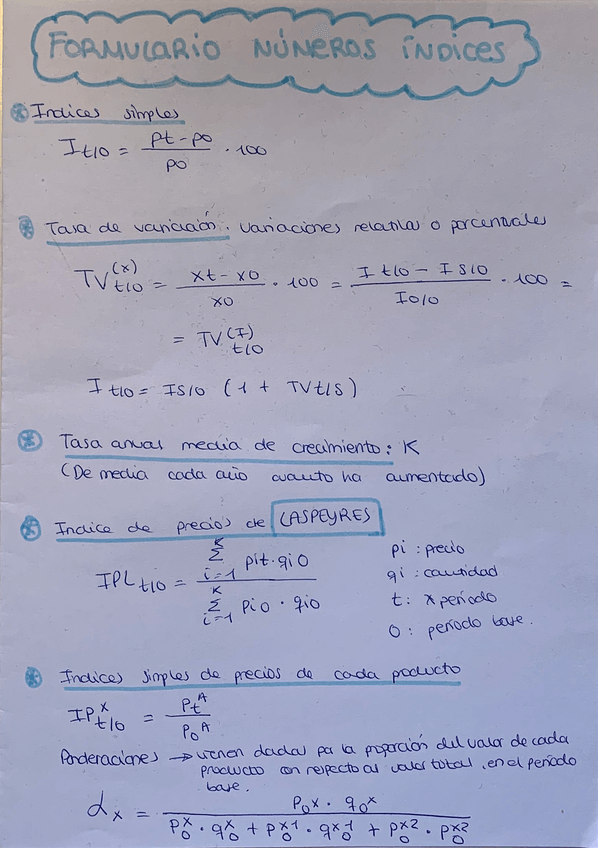 FORMULARIO NÚMEROS ÍNDICES
* Indices simples
I t/0 = (pt - p0) / p0 · 100
* Tasa de variación. Variaciones relativas o porcentuales
TV(x) t/0 = (xt - x0) / x0 · 100 = (I t/0 - I s/0) / I0/0 · 100 =
= TV(I) t/0
I t/0 = Is/0 (1 + TVt/s)
* Tasa anual media de crecimiento: K
(De media cada año cuanto ha aumentado)
* Indice de precios de LASPEYRES
IPL t/0 = (K Σ i=1 pit · qi0) / (K Σ i=1 pi0 · qi0)
pi : precio
qi : cantidad
t : x período
0 : período base.
* Indices simples de precios de cada producto
IP^x t/0 = Pt^A / P0^A
Ponderaciones → vienen dadas por la proporción del valor de cada
producto con respecto al valor total, en el período
base.
αx = (P0^x · q0^x) / (P0^x · q0^x + P0^x1 · q0^x1 + P0^x2 · P0^x2)